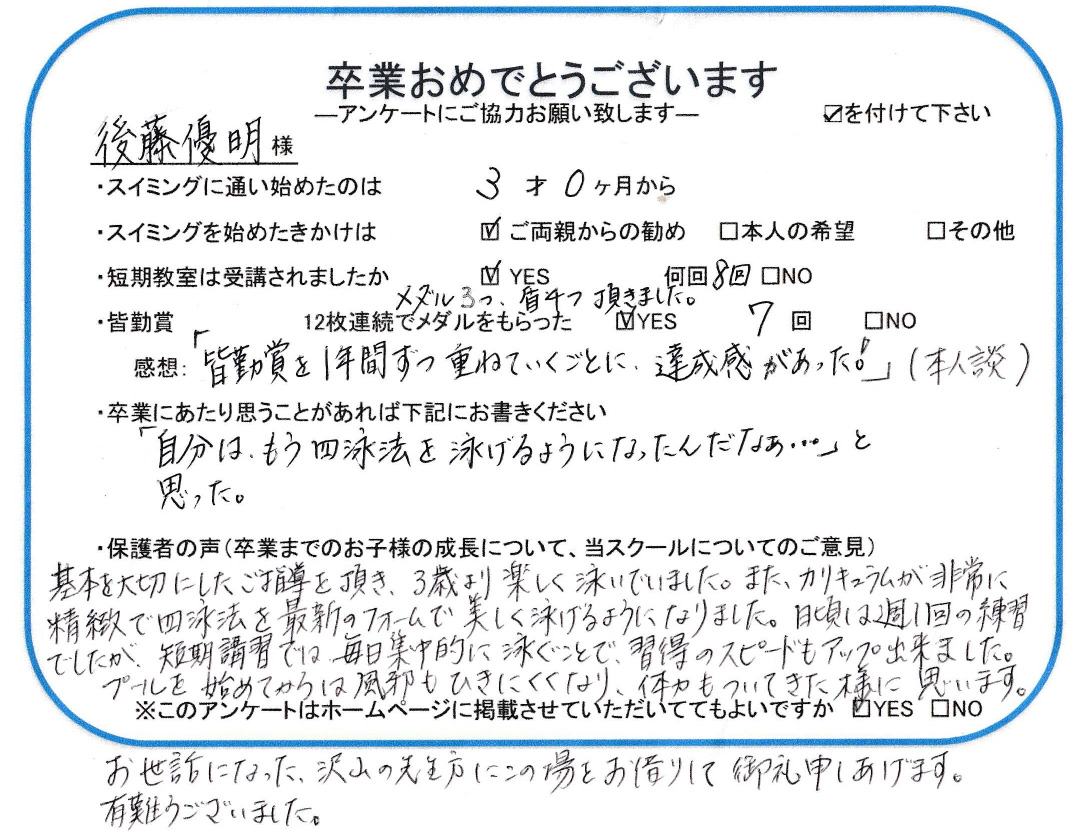 卒業おめでとうございます
―アンケートにご協力お願い致します― ☑を付けて下さい
後藤優明様
・スイミングに通い始めたのは 3才0ヶ月から
・スイミングを始めたきかけは ☑ご両親からの勧め □本人の希望 □その他
・短期教室は受講されましたか ☑YES 何回8回 □NO
メダル3つ、盾4つ頂きました。
・皆勤賞 12枚連続でメダルをもらった ☑YES 7回 □NO
感想:「皆勤賞を1年間ずつ重ねていくごとに、達成感があった!」(本人談)
・卒業にあたり思うことがあれば下記にお書きください
「自分は、もう四泳法を泳げるようになったんだなぁ…。」と
思った。
・保護者の声(卒業までのお子様の成長について、当スクールについてのご意見)
基本を大切にしたご指導を頂き、3歳より楽しく泳いでいました。また、カリキュラムが非常に
精緻で四泳法を最新のフォームで美しく泳げるようになりました。日頃は週1回の練習
でしたが、短期講習では毎日集中的に泳ぐことで、習得のスピードもアップ出来ました。
プールを始めてからは風邪もひきにくくなり、体力もついてきた様に思います。
※このアンケートはホームページに掲載させていただいててもよいですか ☑YES □NO
お世話になった、沢山の先生方にこの場をお借りして御礼申しあげます。
有難うございました。